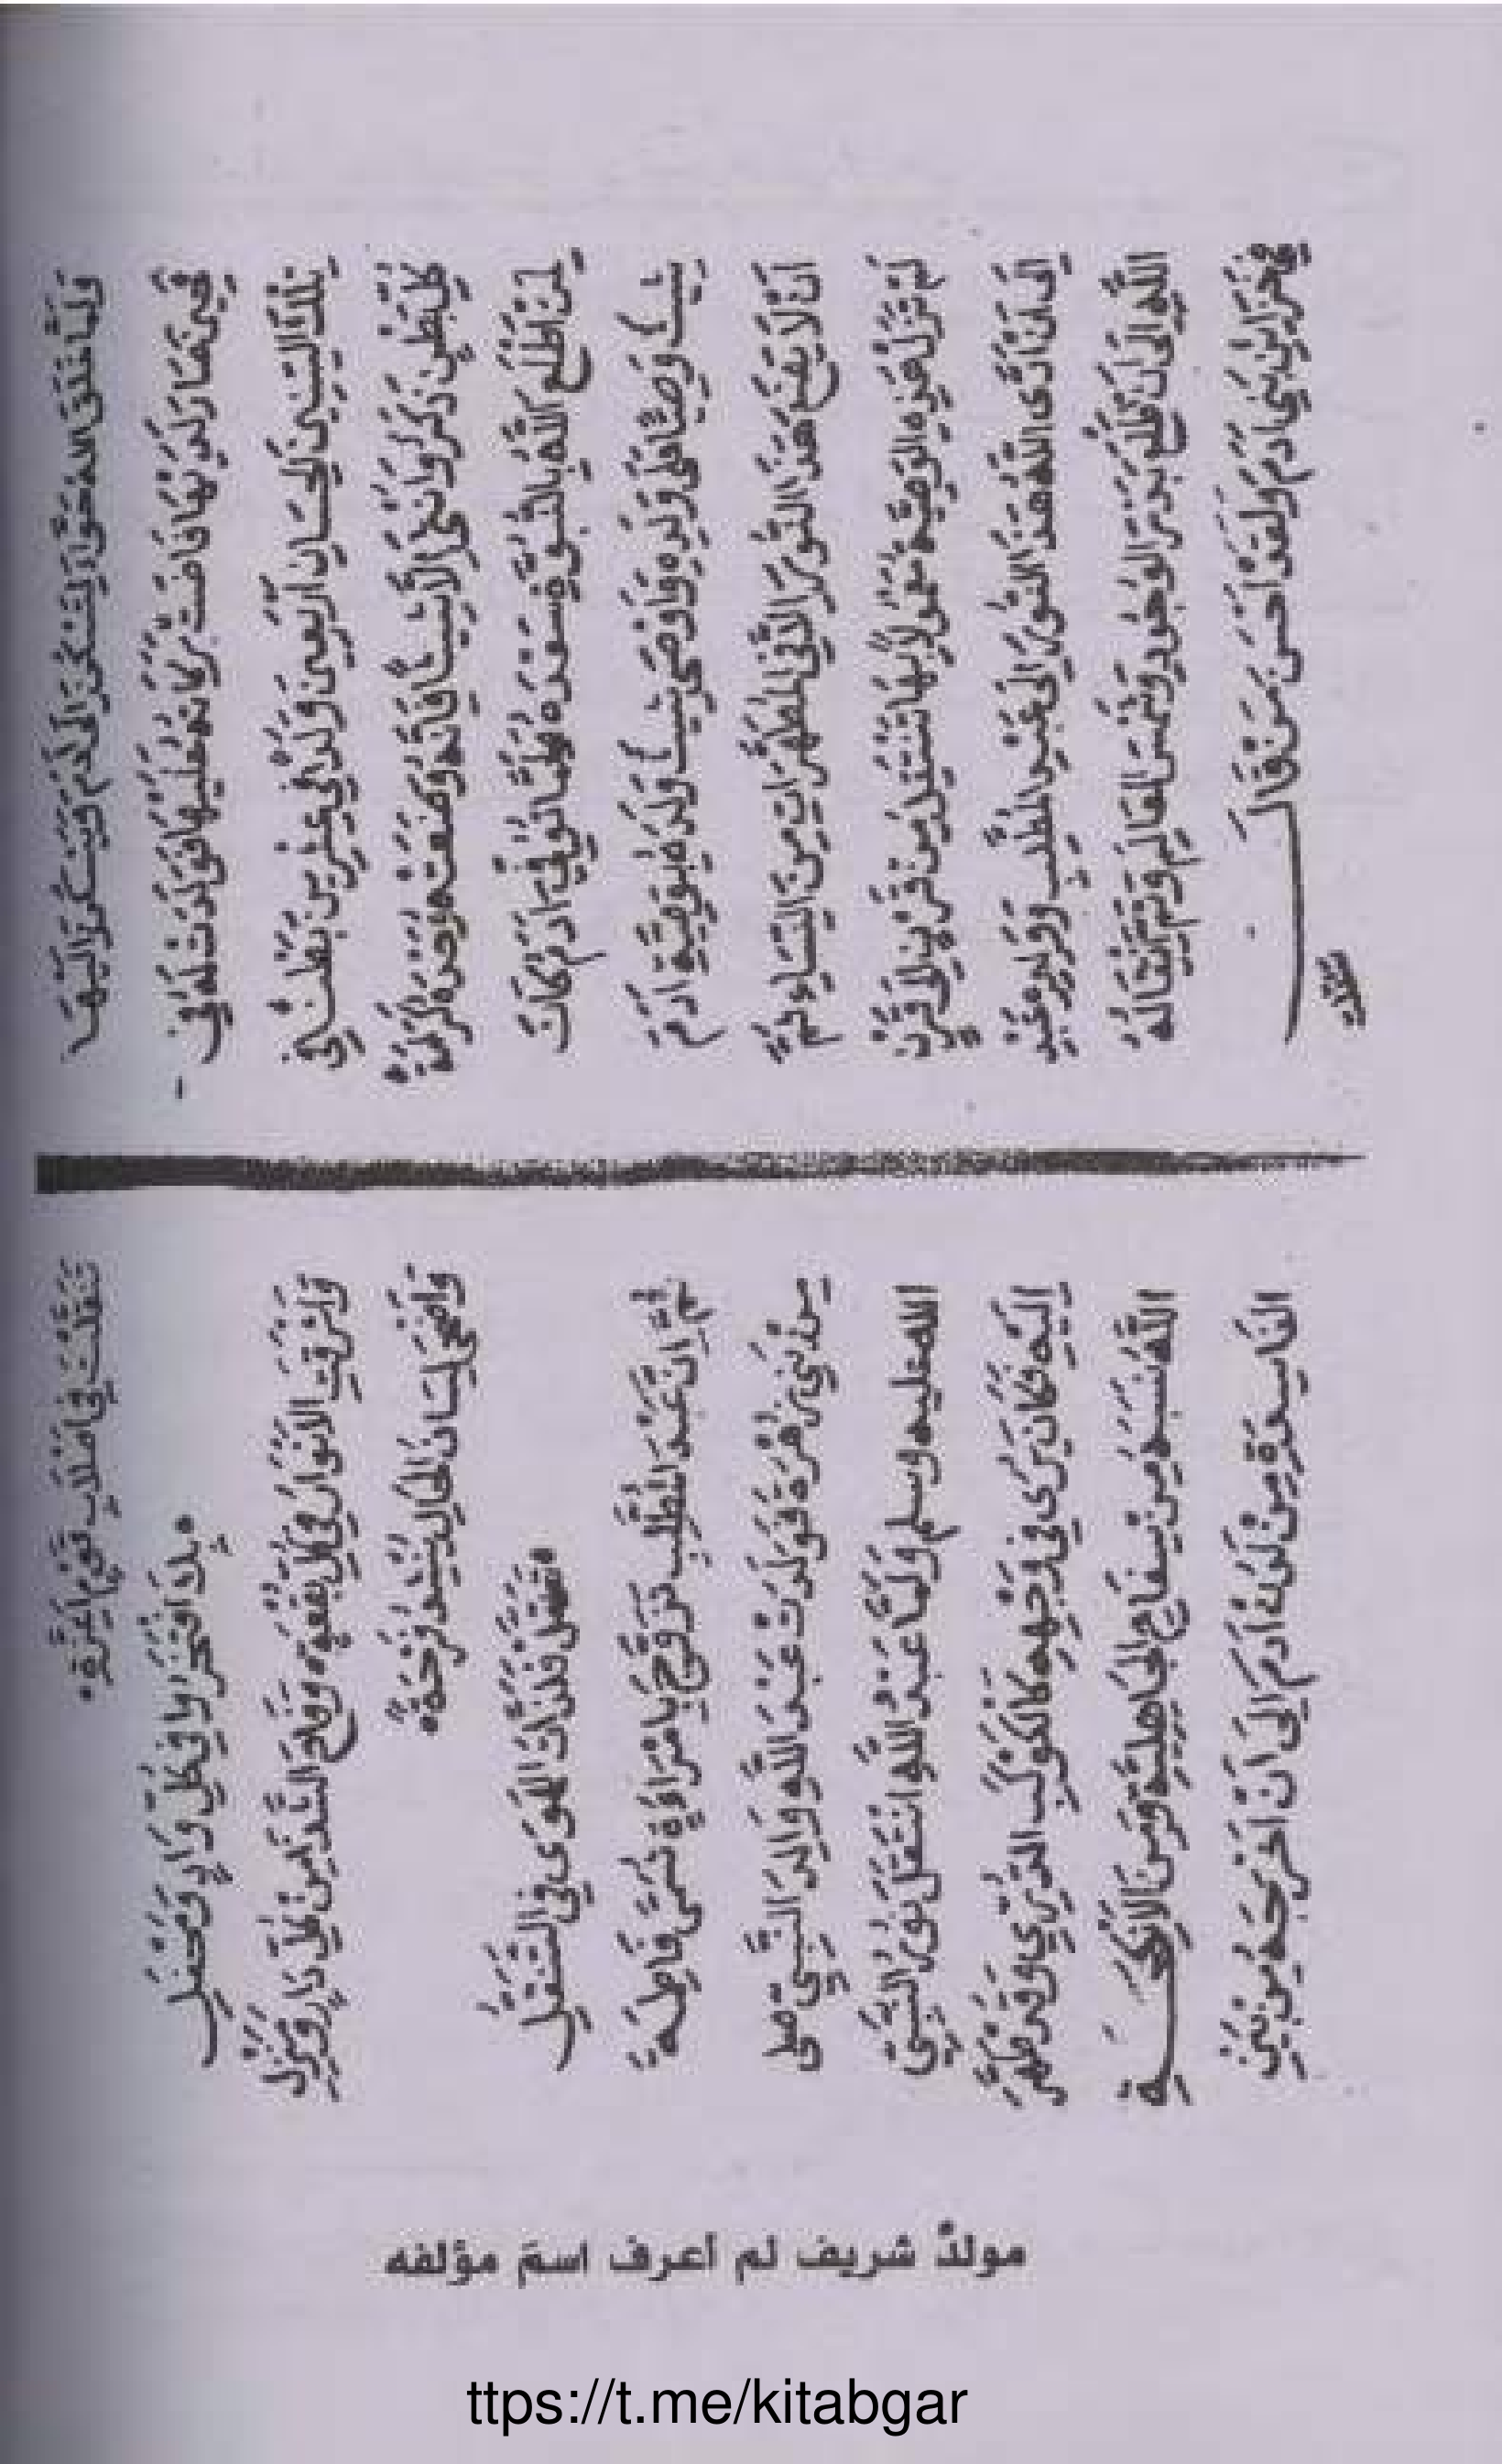 وَلَمَّا خَلَقَ الله حَوَّاءَ لِتَسْكُنَ اِلَى آدَمَ وَيَسْكُنَ اِلَيْهَا
فَحِينَ صَارَ لَدَيْهَا فَاضَتْ بَرَكَاتُهُ عَلَيْهَا فَوَلَدَتْ لَهُ فِي
تِلْكَ السِّنِينَ الْحِسَانِ اَرْبَعِينَ وَلَدًا فِي عِشْرِينَ بَطْنًا فِي
كُلِّ بَطْنٍ ذَكَرٌ وَاُنْثَى اِلَّا شِيثًا فَاِنَّهُ وَضَعَتْهُ وَحْدَهُ كَرَامَةً
لِمَنْ اَطْلَعَ اللَّهُ بِالنُّبُوَّةِ سَعْدَهُ فَلَمَّا تُوُفِّيَ آدَمُ كَانَ
شِيثٌ وَصِيًّا عَلَى وَلَدِهِ فَاَوْصَى شِيثٌ وَلَدَهُ بِوَصِيَّةِ آدَمَ
اَنْ لَا يَضَعَ هَذَا النُّورَ اِلَّا فِي الْمُطَهَّرَاتِ مِنَ النِّسَاءِ ثُمَّ
لَمْ تَزَلْ هَذِهِ الْوَصِيَّةُ مَعْمُولًا بِهَا تَنْتَقِلُ مِنْ قَرْنٍ اِلَى قَرْنٍ
اِلَى اَنْ اَدَّى اللَّهُ هَذَا النُّورَ اِلَى عَبْدِ الْمُطَّلِبِ وَوَلَدِهِ عَبْدِ
اللَّهِ اِلَى اَنْ طَلَعَ بَدْرُ الْوُجُودِ وَشَمْسُ وَتَمَّ انْتِقَالُهُ
بَنِي آدَمَ وَلَقَدْ اَحْسَنَ مَنْ قَالَ
تنقلت
تَنَقَّلْتَ فِي اَصْلَابِ قَوْمٍ اَعِزَّةٍ
بِكَ افْتَخَرُوا فِي كُلِّ وَادٍ وَمَحْفَلِ
وَاَشْرَقَتِ الْاَنْوَارُ فِي كُلِّ بُقْعَةٍ وَفَاحَ الشَّذَا مِنْ كُلِّ دَارٍ وَمَنْزِلِ
وَاَضْحَى لِسَانُ الْحَالِ يُنْشِدُ فَرْحَةً
تَنَقَّلْ فَلَذَّاتُ الْهَوَى فِي التَّنَقُّلِ
ثُمَّ اِنَّ عَبْدَ الْمُطَّلِبِ تَزَوَّجَ بِامْرَاَةٍ تُسَمَّى فَاطِمَةَ
مِنْ بَنِي زُهْرَةَ فَوَلَدَتْ عَبْدَ اللَّهِ وَالِدَ النَّبِيِّ صلى
الله عليه وسلم وَلَمَّا عَبْدُ اللَّهِ انْتَقَلَ نُورُ النَّبِيِّ
اِلَيْهِ فَكَانَ يُرَى فِي وَجْهِهِ كَالْكَوْكَبِ الدُّرِّيِّ وَقَدْ طَهَّرَ
اللَّهُ نَسَبَهُ مِنْ سِفَاحِ الْجَاهِلِيَّةِ وَمِنَ الْاَنْكِحَةِ
الْفَاسِدَةِ مِنْ لَدُنْ آدَمَ اِلَى اَنْ اَخْرَجَهُ مِنْ بَيْنِ
مولدٌ شريف لم أعرف اسمَ مؤلفه
ttps://t.me/kitabgar